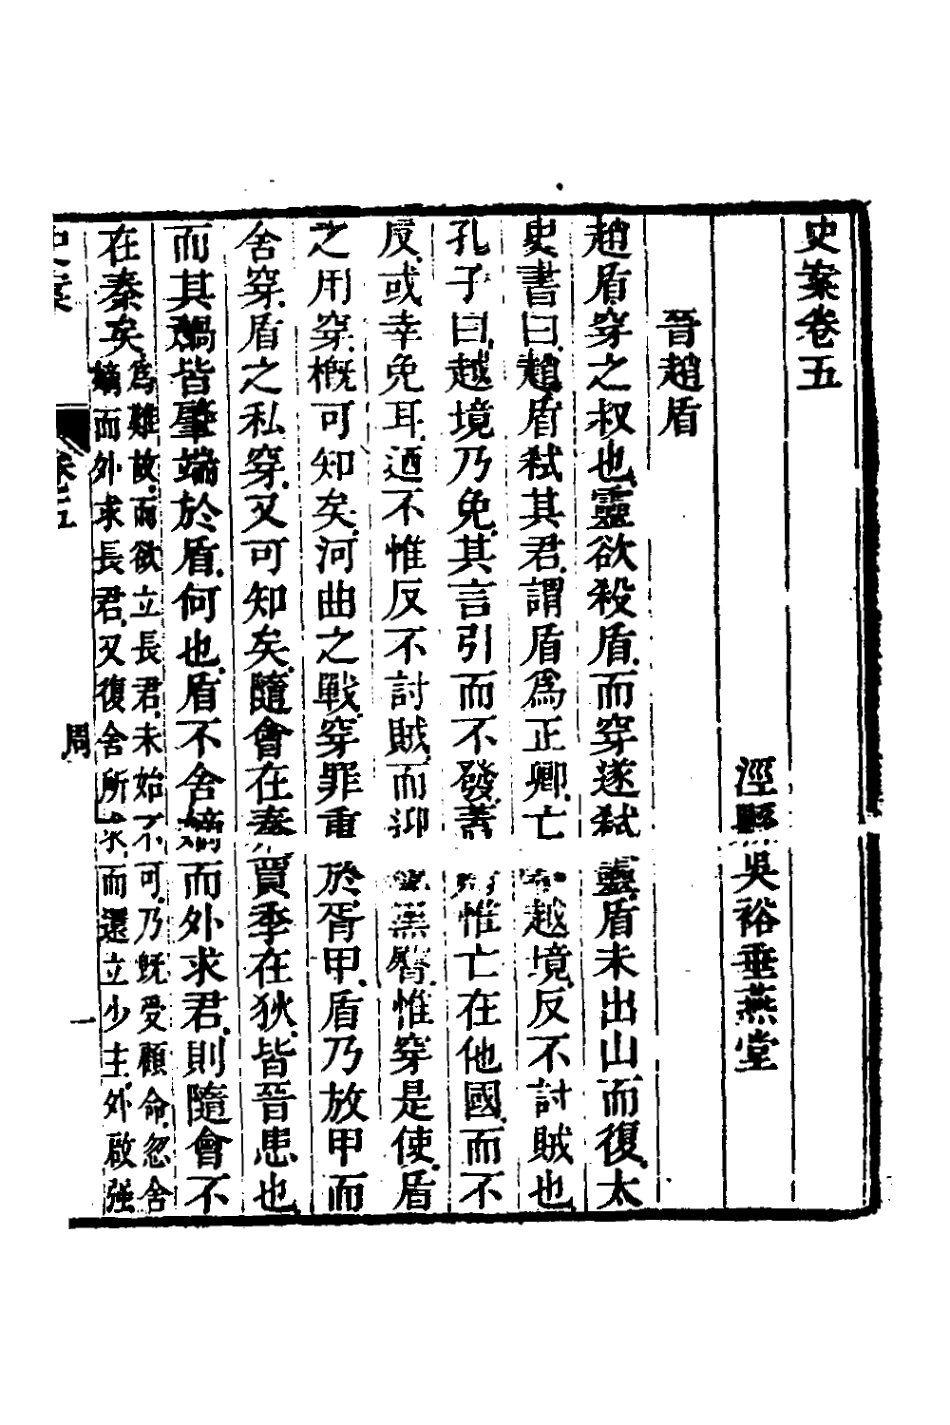 史案卷五
涇縣吳裕垂燕堂
晉趙盾
趙盾穿之叔也靈欲殺盾而穿遂弒靈盾未出山而復太
史書曰趙盾弒其君謂盾爲正卿亡越境反不討賊也
孔子曰越境乃免其言引而不發蓋惟亡在他國而不
反或幸免耳迺不惟反不討賊而抑黑臀惟穿是使盾
之用穿概可知矣河曲之戰穿罪重於胥甲盾乃放甲而
舍穿盾之私穿又可知矣隨會在秦賈季在狄皆晉患也
而其禍皆肇端於盾何也盾不舍嫡而外求君則隨會不
在秦矣爲難故而欲立長君未始不可乃旣受顧命忽舍
嫡而外求長君又復舍所求而還立少主外啟强
史案
卷五
周
一